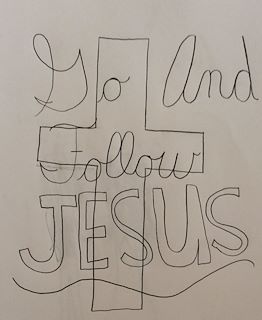 Go And
Follow
JESUS